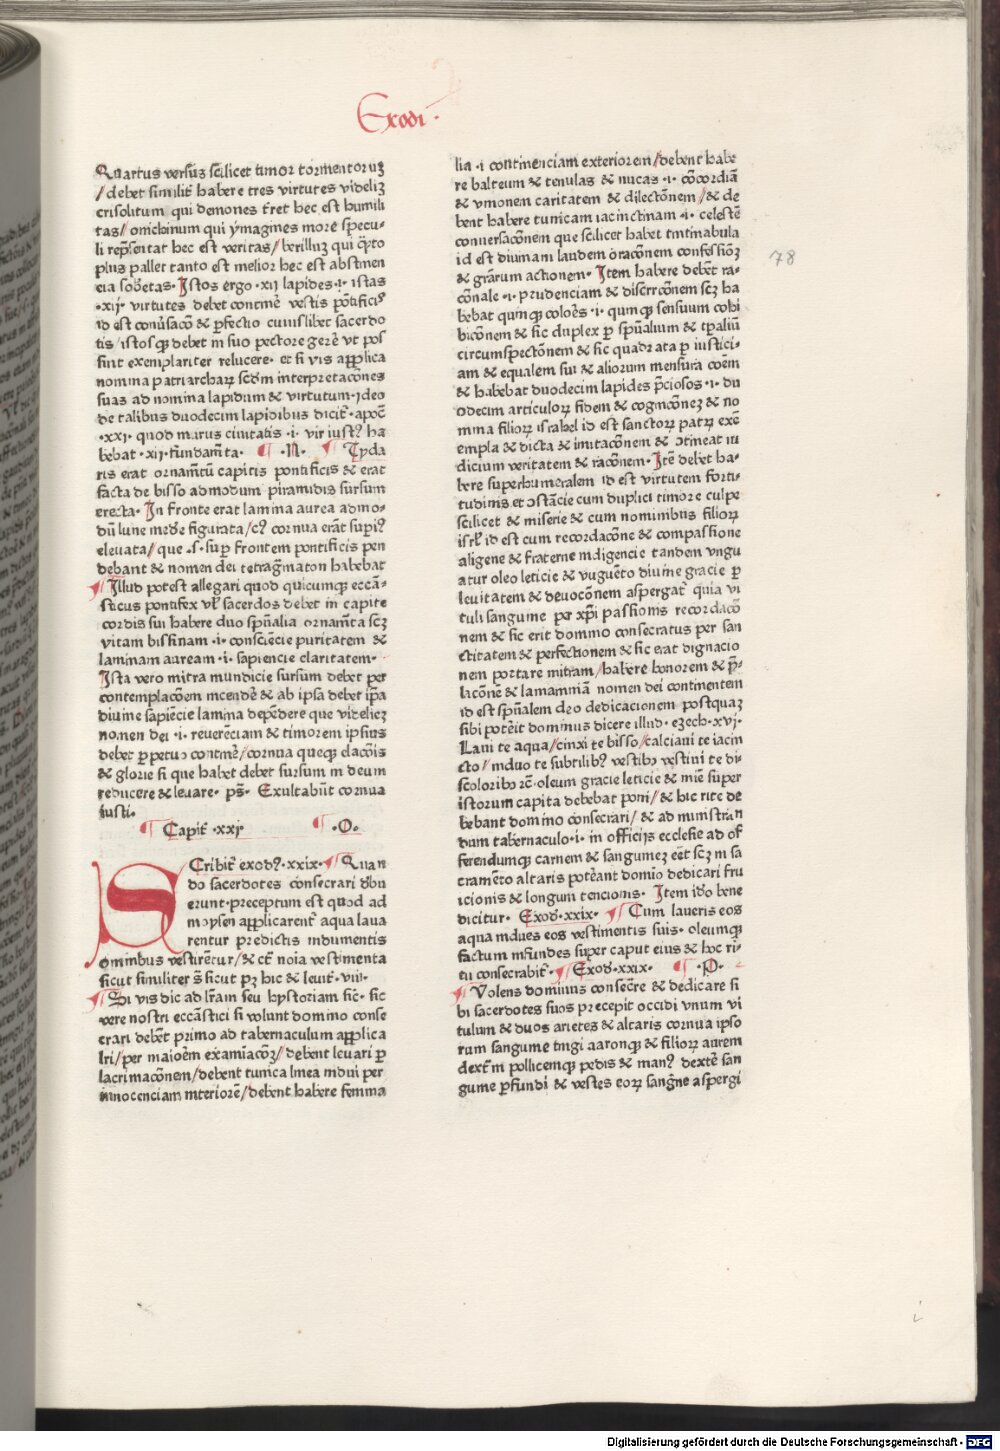 Exodi.
Quartus versus scilicet timor tormentoruʒ
/ debet similit̄ habere tres virtutes videliʒ
crisolitum qui demones t̄ret hec est humili
tas/ onichinum qui ymagines more specu-
li rep̄sentat hec est veritas/ berillus qui q̄ꝫto
plus pallet tanto est melior hec est abstinen
cia sob̄etas. Istos ergo .xij lapides .i. istas
.xij. virtutes debet contine᷑ vestis pōtificiꝰ
id est cōūsacō & ꝑfectio cuiuslibet sacerdo
tis / istosqꝫ debet in suo pectore gere᷑ vt pos
sint exemplariter relucere. et si vis applica
nomina patriarchaꝝ scd̄m interpretacōnes
suas ad nomina lapidum & virtutum. ideo
de talibus duodecim lapidibus dicit᷑. apoc̄
.xxj. quod murus ciuitatis .i. vir iustꝰ ha
bebat .xij. fūndam̄ta. ¶ .N. ¶ Cyda
ris erat ornam̄tū capitis pontificis & erat
facta de bisso admodum piramidis sursum
erecta. In fronte erat lamina aurea admo-
dū lune medie figurata / cꝰ cornua erāt supiꝰ
eleuata / que .s. suꝑ frontem pontificis pen
debant & nomen dei tetragr̄maton habebat
¶ Illud potest allegari quod quicumqꝫ eccā-
sticus pontifex vl̄ sacerdos debet in capite
cordis sui habere duo sp̄ualia ornam̄ta scʒ
vitam bissinam .i. consciēcie puritatem &
laminam auream .i. sapiencie claritatem.
Ista vero mitra mundicie sursum debet per
contemplacōem incende᷑ & ab ipsa debet ip̄a
diuine sapiēcie lamina depēdere que videlicʒ
nomen dei .i. reuerēciam & timorem ipsius
debet ꝑpetuo contine᷑ / cornua queqꝫ elacōis
& glorie si que habet debet sursum in deum
reducere & leuare. ps̄. Exultabūt cornua
iusti.
¶ Capit̄ .xxj ¶ .O.
SCribit᷑ exodꝰ. xxix. ¶ Quan
do sacerdotes consecrari dēbu
erunt. preceptum est quod ad
moysen applicarent᷑ aqua laua
rentur predictis indumentis
omnibus vestirētur / & cet̄ noīa vestimenta
sicut similiter s̄ sicut pꝫ hic & leuit̄. viii.
¶ Si vis dic ad lr̄am seu hystoriam sic̄. sic
vere nostri eccāstici si volunt domino conse
crari debēt primo ad tabernaculum applica
lri / per maioēm examiacōꝫ / debent leuari ꝑ
lacrimacōnem / debent tunica linea indui per
innocenciam interiorē / debent habere femina
lia .i continenciam exteriorem / debent habe
re balteum & tenulas & nucas .i. cōcordiā
& vnionem caritatem & dilectōnem / & de
bent habere tunicam iacinctinam .i. celestē
conuersacōnem que scilicet habet tintinabula
id est diuinam laudem oracōnem confessiōʒ
& grārum actionem. Item habere debent ra-
cōnale .i. prudenciam & discrecōnem scʒ ha
bebat quinqꝫ colores .i. quinqꝫ sensuum cohi
bicōnem & sic duplex ꝑ sp̄ualium & tꝑaliū
circumspectōnem & sic quadrata ꝑ iustici-
am & equalem sui & aliorum mensurā coēm
& habebat duodecim lapides p̄ciosos .i. du
odecim articuloꝝ fidem & cognicōneʒ & no
mina filioꝝ israhel id est sanctoꝝ patꝝ exē
empla & dicta & imitacōnem & ↄtineat iu
dicium veritatem & racōnem. Itē debet ha-
bere superhumeralem id est virtutem forti-
tudinis et ↄstācie cum duplici timore culpe
scilicet & miserie & cum nominibus filioꝝ
isrl̄ id est cum recordacōne & compassione
aligene & fraterne indigencie tandem vngu
atur oleo leticie & vnguēto diuine gracie ꝑ
leuitatem & deuocōnem aspergat᷑ quia vi
tuli sanguine per xp̄i passionis recordacō
nem & sic erit domino consecratus per san
ctitatem & perfectionem & sic erat dignacio
nem portare mitram / habere honorem & p̄-
lacōnē & lamaminā nomen dei continentem
id est sp̄ualem deo dedicacionem postquaʒ
sibi potēit dominus dicere illud. eʒech. xvj.
Laui te aqua / cinxi te bisso / calciaui te iacin
cto / induo te subtilibꝰ vestibꝰ vestiui te di-
scoloribꝰ ⁊c̄. oleum gracie leticie & mīe super
istorum capita debebat poni / & hic rite de
bebant domino consecrari / & ad ministran
dum tabernaculo .i. in officijs ecclesie ad of
ferendumqꝫ carnem & sanguineʒ eēt scʒ in sa
cramēto altaris potēant domīo dedicari fru
icionis & longum tencionis. Item ideo bene
dicitur. Exod̄. xxix. ¶ Cum laueris eos
aqua indues eos vestimentis suis. oleumqꝫ
factum infundes super caput eius & hoc ri-
tu consecrabit᷑. ¶ Exod̄. xxix. ¶ .P.
¶ Volens dominus consecre᷑ & dedicare si
bi sacerdotes suos precepit occidi vnum vi
tulum & duos arietes & altaris cornua ipso
rum sanguine tingi aaronqꝫ & filioꝝ aurem
dextrā pollicemqꝫ pedis & manꝰ dextē san
guine ꝑfundi & vestes eoꝝ sanḡne aspergi
78
i
Digitalisierung gefördert durch die Deutsche Forschungsgemeinschaft - DFG